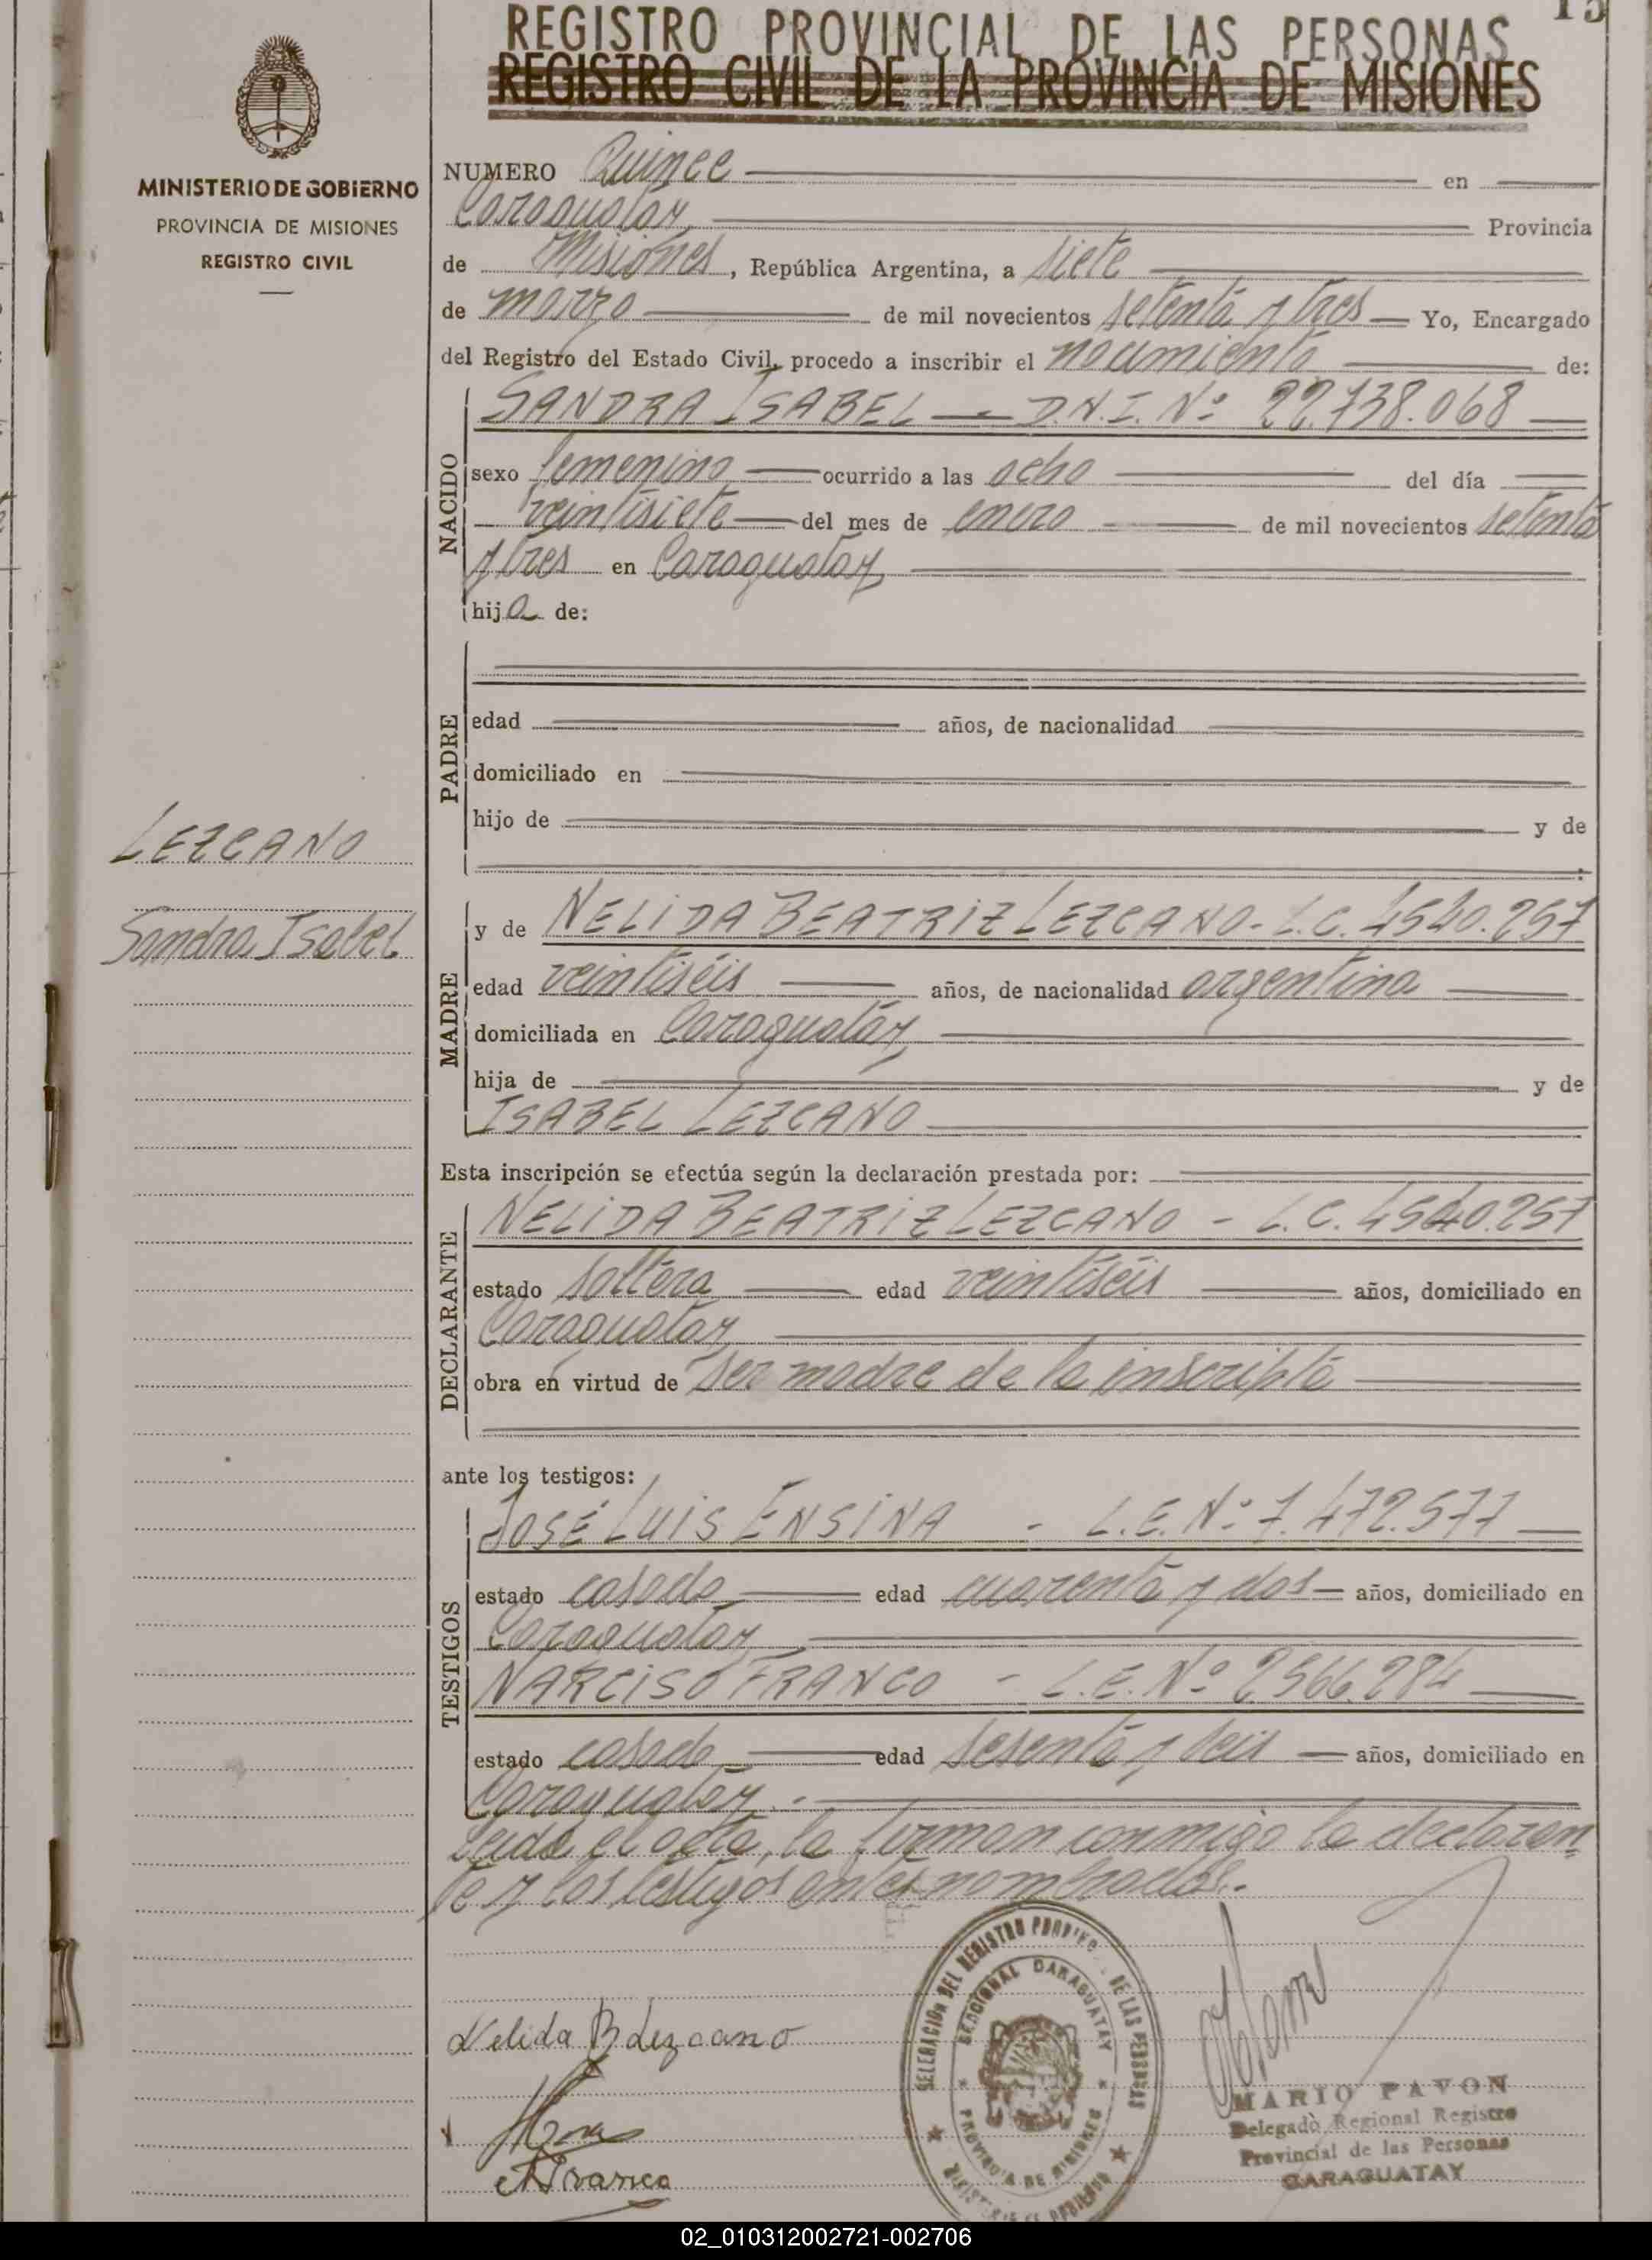 15
REGISTRO PROVINCIAL DE LAS PERSONAS
REGISTRO CIVIL DE LA PROVINCIA DE MISIONES
MINISTERIO DE GOBIERNO
PROVINCIA DE MISIONES
REGISTRO CIVIL
NUMERO Quince en
Caraguatay Provincia
de Misiones, República Argentina, a siete
de marzo de mil novecientos setenta y tres Yo, Encargado
del Registro del Estado Civil, procedo a inscribir el nacimiento de:
NACIDO
SANDRA ISABEL - D.N.I. Nº 22.738.068
sexo femenino ocurrido a las ocho del día
veintisiete del mes de enero de mil novecientos setenta
y tres en Caraguatay
hija de:
PADRE
edad años, de nacionalidad
domiciliado en
hijo de y de
LEZCANO
Sandra Isabel
MADRE
y de NELIDA BEATRIZ LEZCANO - L.C. 4540.257
edad veintiséis años, de nacionalidad argentina
domiciliada en Caraguatay
hija de y de
ISABEL LEZCANO
Esta inscripción se efectúa según la declaración prestada por:
DECLARANTE
NELIDA BEATRIZ LEZCANO - L.C. 4540.257
estado soltera edad veintiséis años, domiciliado en
Caraguatay
obra en virtud de ser madre de la inscripta
ante los testigos:
TESTIGOS
JOSÉ LUIS ENSINA - L.E. Nº 7.472.577
estado casado edad cuarenta y dos años, domiciliado en
Caraguatay
NARCISO FRANCO - L.E. Nº 2566.284
estado casado edad sesenta y seis años, domiciliado en
Caraguatay.-
Leida el acta, la firman conmigo la declaran
te y los testigos antes nombrados.-
Nelida B Lezcano
NFranco
DELEGACION DEL REGISTRO PROVINC. DE LAS PERSONAS
SECCIONAL CARAGUATAY
PROVINCIA DE MISIONES
MINISTERIO DE GOBIERNO
MARIO PAVON
Delegado Regional Registro
Provincial de las Personas
CARAGUATAY
02_010312002721-002706